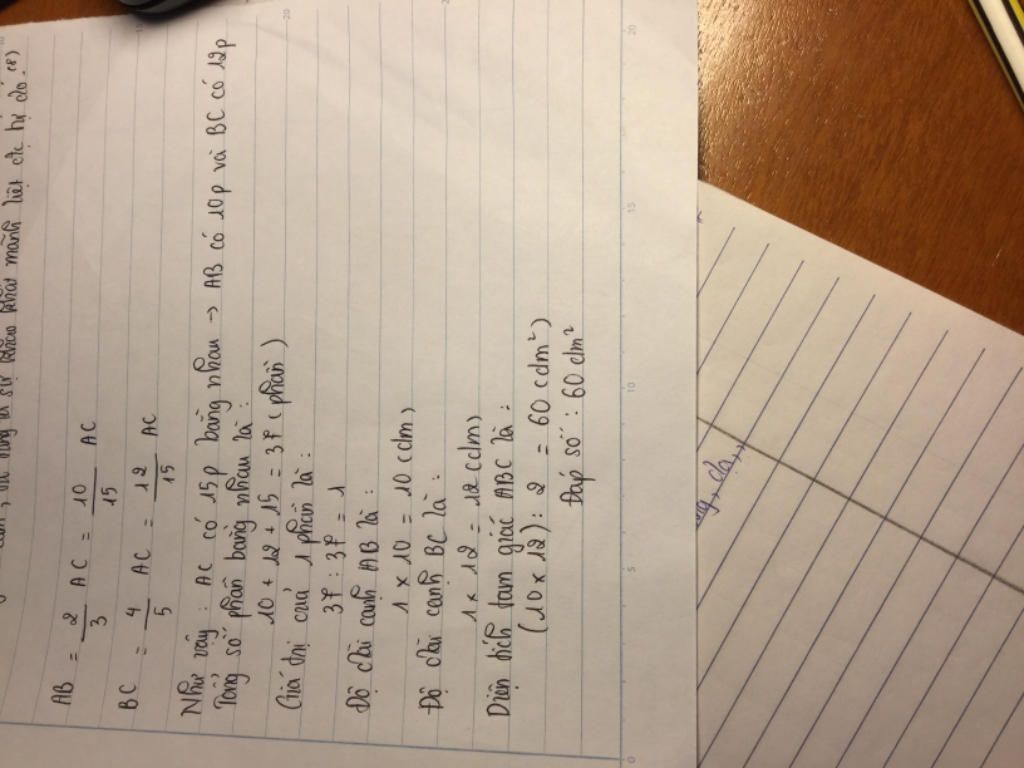 là sự khao khát mãnh liệt
AB = 2/3 AC = 10/15 AC
BC = 4/5 AC = 12/15 AC
Như vậy : AC có 15p bằng nhau → AB có 10p và BC có 12p
Tổng số phần bằng nhau là :
10 + 12 + 15 = 37 ( phần )
Giá trị của 1 phần là :
37 : 37 = 1
Độ dài cạnh AB là :
1 × 10 = 10 (dm)
Độ dài cạnh BC là :
1 × 12 = 12 (dm)
Diện tích tam giác ABC là :
(10 × 12) : 2 = 60 (dm²)
Đáp số : 60 dm²